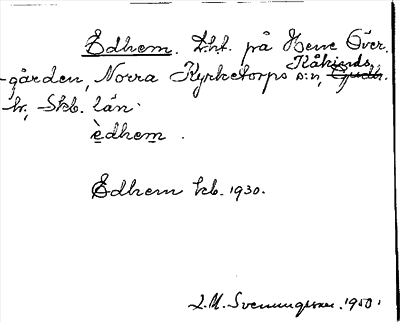 Edhem. Lht. på Hene Över-
gården, Norra Kyrketorps s:n, Kåkinds
hr, Skb. län.
èdhem.
Edhem kb. 1930.
L.M. Svenungsson. 1950.